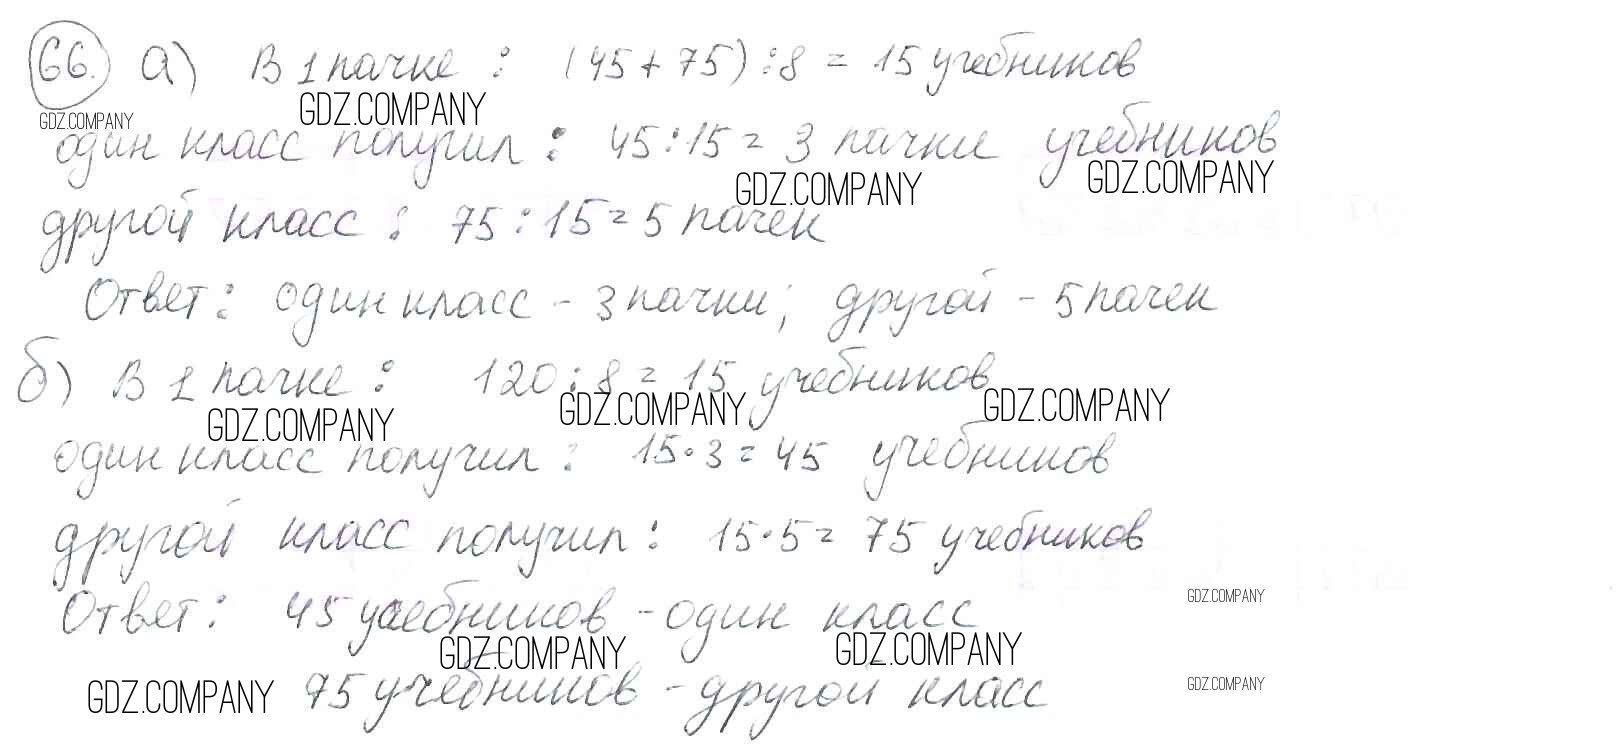 66. а) В 1 пачке : (45 + 75) : 8 = 15 учебников
GDZ.COMPANY GDZ.COMPANY
один класс получил : 45 : 15 = 3 пачки учебников
GDZ.COMPANY GDZ.COMPANY
другой класс : 75 : 15 = 5 пачек
Ответ : один класс - 3 пачки ; другой - 5 пачек
б) В 1 пачке : 120 : 8 = 15 учебников
GDZ.COMPANY GDZ.COMPANY GDZ.COMPANY
один класс получил : 15 · 3 = 45 учебников
другой класс получил : 15 · 5 = 75 учебников
Ответ : 45 учебников - один класс GDZ.COMPANY
GDZ.COMPANY GDZ.COMPANY
GDZ.COMPANY 75 учебников - другой класс GDZ.COMPANY